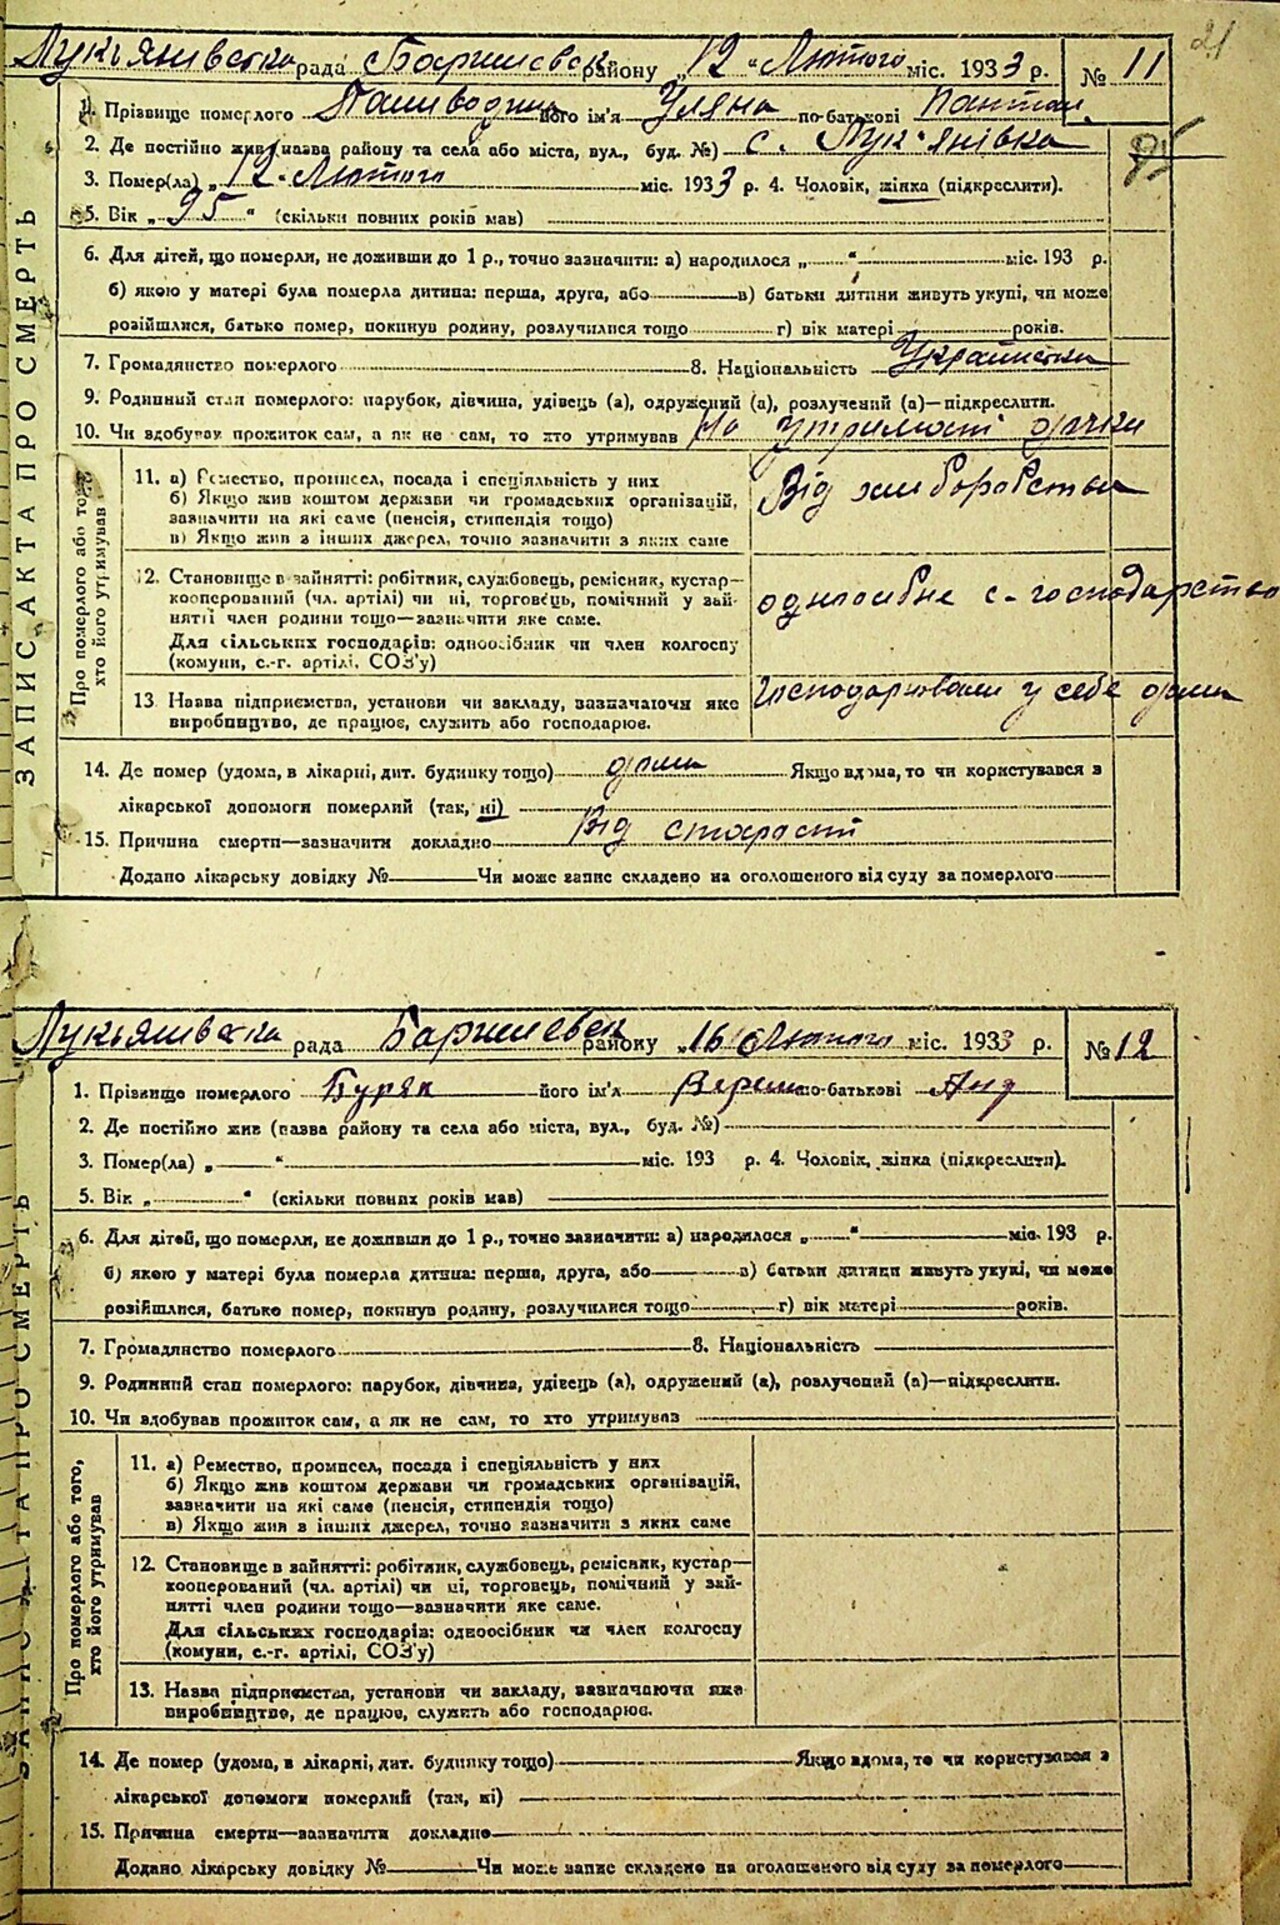 21
Лукьянівська рада Баришевськ району „12“ Лютого міс. 1933 р. № 11
1. Прізвище померлого Паливодина його ім'я Уляна по-батькові Пантел.
2. Де постійно жив (назва району та села або міста, вул., буд. №) с. Лук'янівка
3. Помер(ла) „12. Лютого міс. 1933 р. 4. Чоловік, жінка (підкреслити).
5. Вік „95“ (скільки повних років мав)
6. Для дітей, що померли, не доживши до 1 р., точно зазначити: а) народилося „ “ міс. 193 р.
б) якою у матері була померла дитина: перша, друга, або в) батьки дитини живуть укупі, чи може
розійшлися, батько помер, покинув родину, розлучилися тощо г) вік матері років.
7. Громадянство померлого 8. Національність Українська
9. Родинний стан померлого: парубок, дівчина, удівець (а), одружений (а), розлучений (а)—підкреслити.
10. Чи здобував прожиток сам, а як не сам, то хто утримував На утримості дочки
ЗАПИС АКТА ПРО СМЕРТЬ
Про померлого або того, хто його утримував
11. а) Ремество, промисел, посада і спеціяльність у них
б) Якщо жив коштом держави чи громадських організацій,
зазначити на які саме (пенсія, стипендія тощо)
в) Якщо жив з інших джерел, точно зазначити з яких саме
Від хлиборобства
12. Становище в зайнятті: робітник, службовець, ремісник, кустар—
кооперований (чл. артілі) чи ні, торговець, помічний у зай-
нятті член родини тощо—зазначити яке саме.
Для сільських господарів: одноосібник чи член колгоспу
(комуни, с.-г. артілі, СОЗ'у)
одноосибне с-господарство
13. Назва підприємства, установи чи закладу, зазначаючи яке
виробництво, де працює, служить або господарює.
господарювали у себе дома
14. Де помер (удома, в лікарні, дит. будинку тощо) дома Якщо вдома, то чи користувався з
лікарської допомоги померлий (так, ні)
15. Причина смерти—зазначити докладно Від старости
Додано лікарську довідку № Чи може запис складено на оголошеного від суду за померлого
Лукьянівська рада Баришевськ району „16“ Лютого міс. 1933 р. № 12
1. Прізвище померлого Буряк його ім'я Верем по-батькові Анд
2. Де постійно жив (назва району та села або міста, вул., буд. №)
3. Помер(ла) „ “ міс. 193 р. 4. Чоловік, жінка (підкреслити).
5. Вік „ “ (скільки повних років мав)
6. Для дітей, що померли, не доживши до 1 р., точно зазначити: а) народилося „ “ міс. 193 р.
б) якою у матері була померла дитина: перша, друга, або в) батьки дитини живуть укупі, чи може
розійшлися, батько помер, покинув родину, розлучилися тощо г) вік матері років.
7. Громадянство померлого 8. Національність
9. Родинний стан померлого: парубок, дівчина, удівець (а), одружений (а), розлучений (а)—підкреслити.
10. Чи здобував прожиток сам, а як не сам, то хто утримував
ЗАПИС АКТА ПРО СМЕРТЬ
Про померлого або того, хто його утримував
11. а) Ремество, промисел, посада і спеціяльність у них
б) Якщо жив коштом держави чи громадських організацій,
зазначити на які саме (пенсія, стипендія тощо)
в) Якщо жив в інших джерел, точно зазначити з яких саме
12. Становище в зайнятті: робітник, службовець, ремісник, кустар—
кооперований (чл. артілі) чи ні, торговець, помічний у зай-
нятті член родини тощо—зазначити яке саме.
Для сільських господарів: одноосібник чи член колгоспу
(комуни, с.-г. артілі, СОЗ'у)
13. Назва підприємства, установи чи закладу, зазначаючи яке
виробництво, де працює, служить або господарює.
14. Де помер (удома, в лікарні, дит. будинку тощо) Якщо вдома, то чи користувався з
лікарської допомоги померлий (так, ні)
15. Причина смерти—зазначити докладно
Додано лікарську довідку № Чи може запис складено на оголошеного від суду за померлого